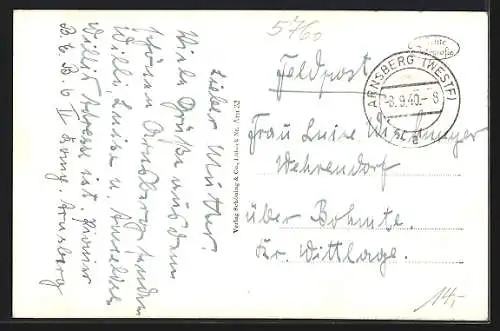 5760
Lieber Mutter!
Viele Grüße aus dem
schönen Arnsberg senden
Willi, Luise u.
Willis Adresse ist
B. E. B. 6 II Arnsberg
Verlag Schöning & Co., Lübeck Nr. Arn 32
Feldpost
ARNSBERG (WESTF)
-8.9.40.-8
a
Frau Luise
Wehrendorf
über Bohmte.
Kr. Wittlage.
14,-